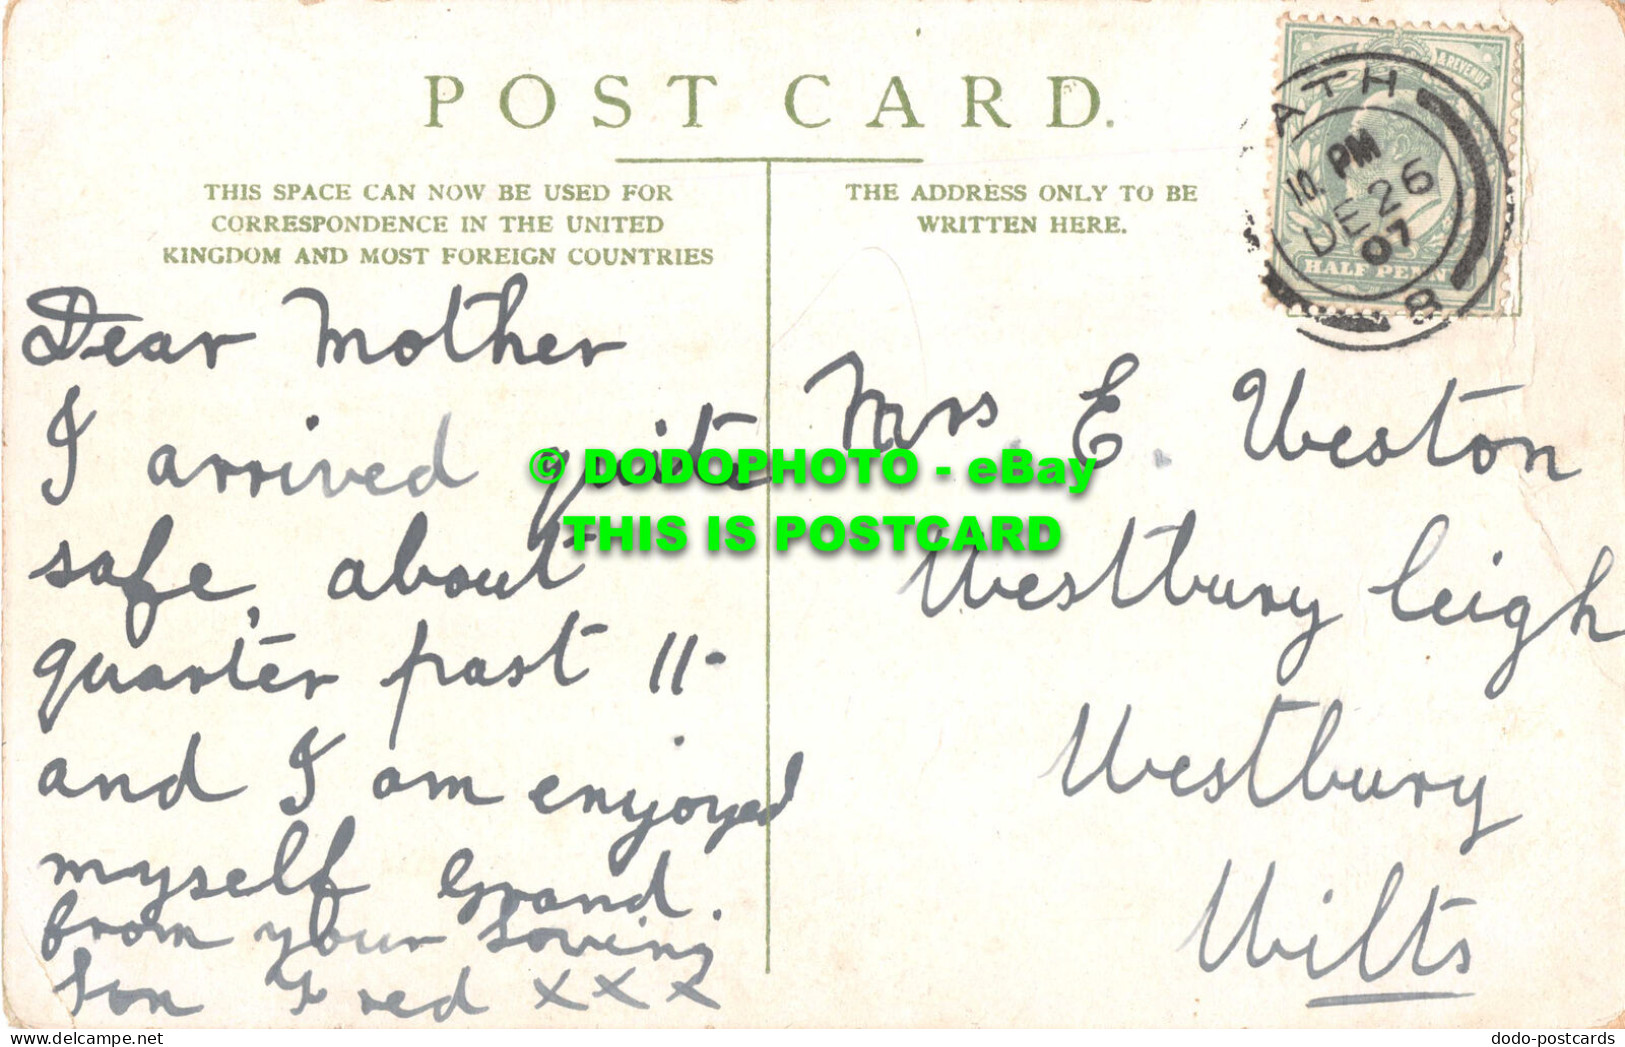 POST CARD.
THIS SPACE CAN NOW BE USED FOR
CORRESPONDENCE IN THE UNITED
KINGDOM AND MOST FOREIGN COUNTRIES
THE ADDRESS ONLY TO BE
WRITTEN HERE.
& REVENUE
HALF PENN
ATH
10. PM
DE 26
07
8
Dear Mother
I arrived quite
safe, about
quarter past 11-
and I am enjoyed
myself Grand.
from your Loving
Son Fred xxx
Mrs E. Weston
Westbury Leigh
Westbury
Wilts
© DODOPHOTO - eBay
THIS IS POSTCARD
dodo-postcards